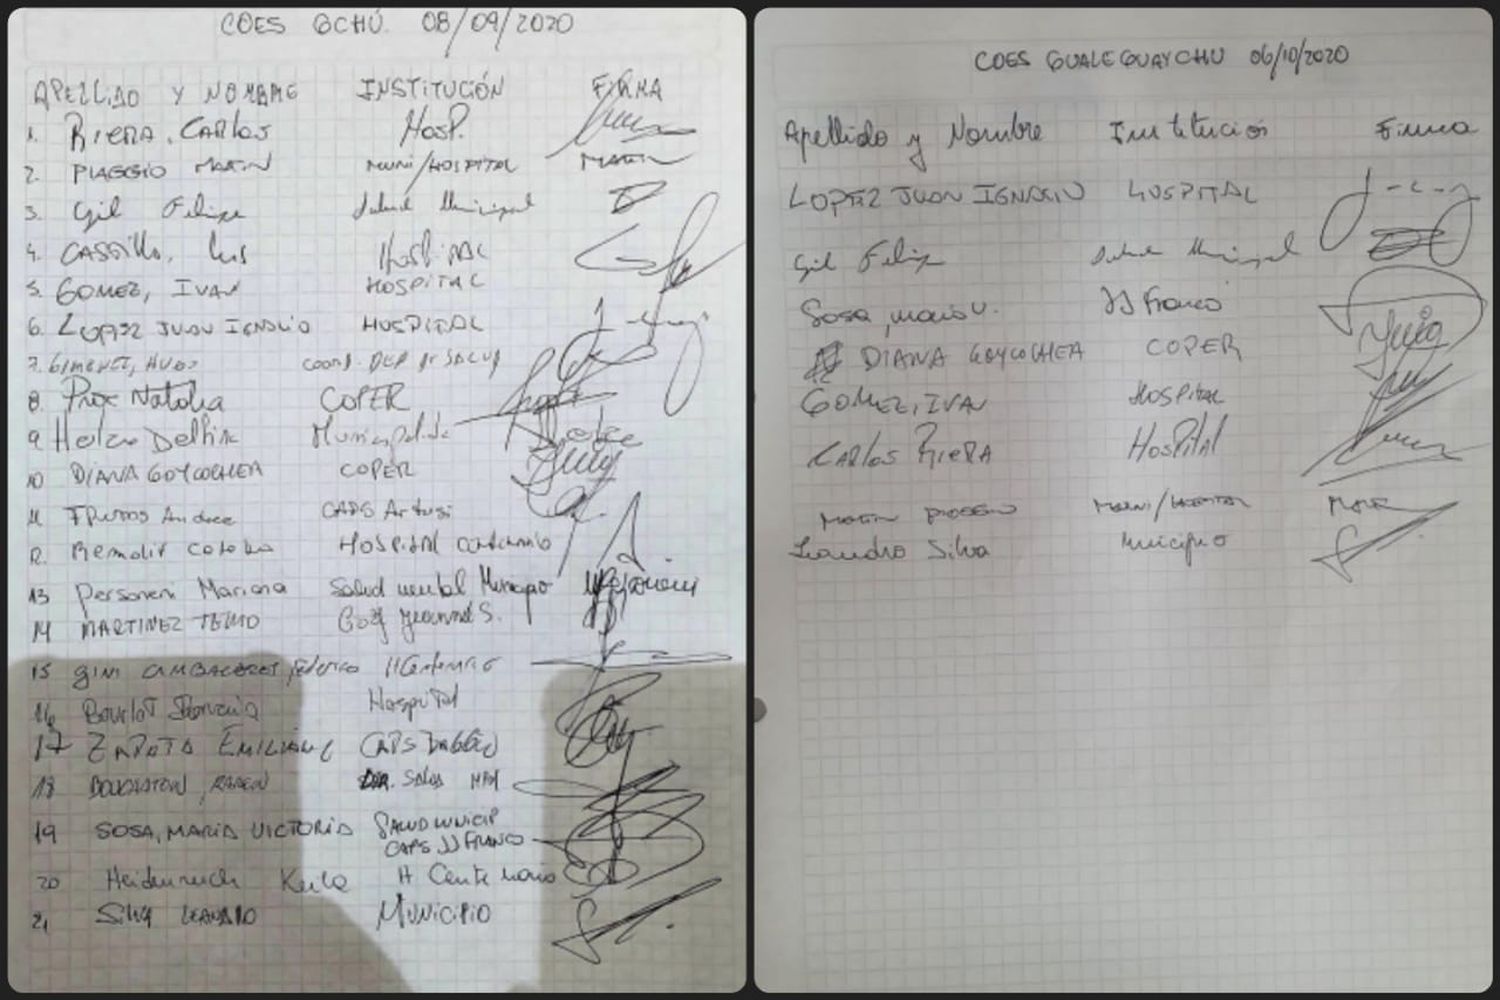 COES GCHÚ. 08/09/2020
APELLIDO Y NOMBRE INSTITUCIÓN FIRMA
1. RIERA, CARLOS HOSP.
2. PIAGGIO MARTIN MUNI/HOSPITAL MARTIN
3. Gil Felipe Salud Municipal
4. CASSILLO, Luis HOSPITAL
5. GOMEZ, IVAN HOSPITAL
6. LOPEZ JUAN IGNACIO HOSPITAL
7. GIMENEZ, HUGO COORD. DEP SALUD
8. Natalia COPER
9 Delfin Municipalidad
10 DIANA GOYCOCHEA COPER
11 Frutos Andrea CAPS Artusi
12. Remedir Hospital Centenario
13 Personeni Mariana Salud mental Municipio
14 MARTINEZ TELMO
15 GINI CAMBACERES Federico H Centenario
16 Bourlot Hospital
17 ZAPATA EMILIANO CAPS
18 DIR. SALUD
19 SOSA, MARIA VICTORIA SALUD MUNICIP CAPS JJ FRANCO
20 Heidenreich Keila H Centenario
21 SILVA LEANDRO MUNICIPIO
COES GUALEGUAYCHU 06/10/2020
Apellido y Nombre Institución Firma
LOPEZ JUAN IGNACIO HOSPITAL
Gil Felipe Salud Municipal
Sosa, Maria V. JJ Franco
DIANA GOYCOCHEA COPER
GOMEZ, IVAN HOSPITAL
CARLOS RIERA HOSPITAL
MARTIN PIAGGIO MUNI/HOSPITAL MARTIN
Leandro Silva Municipio